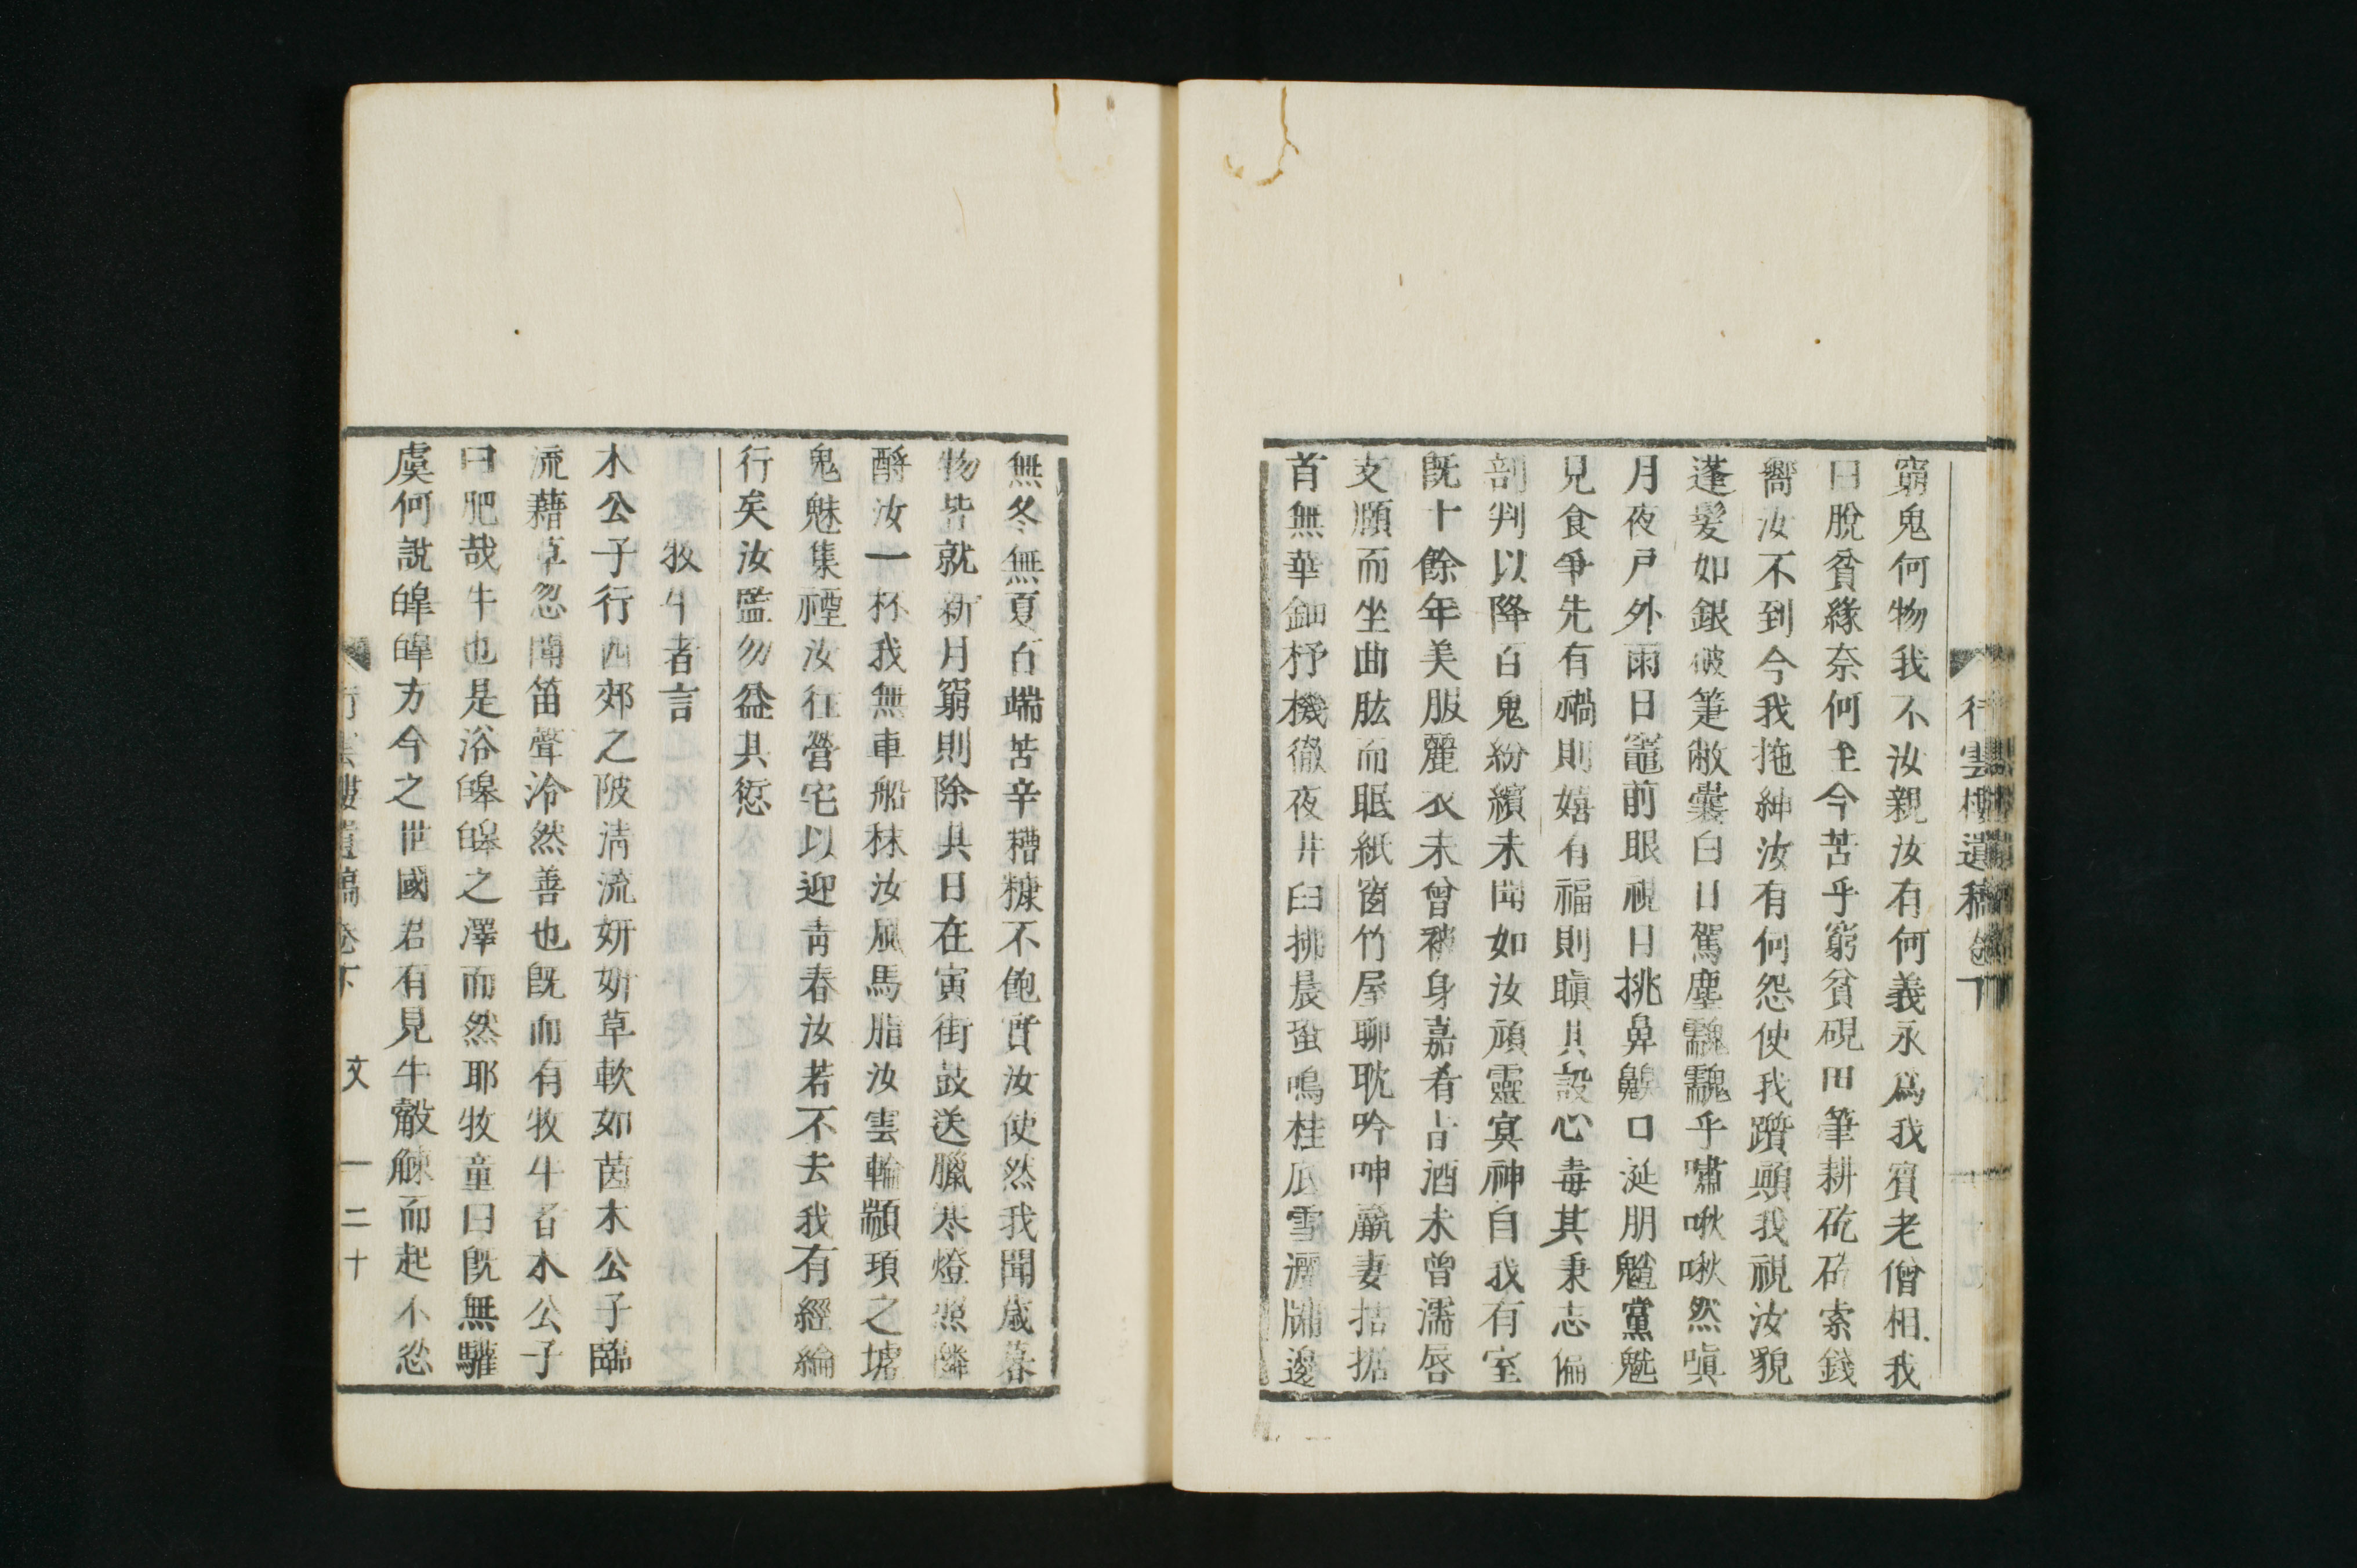 行雲樓遺稿卷下
窮鬼何物我不汝親汝有何義永爲我賓老僧相我
曰脫貧緣奈何至今苦乎窮貧硯田筆耕矻矻索錢
嚮汝不到今我拖紳汝有何怨使我躓顚我視汝貌
蓬髮如銀破箑敝囊白日駕塵䨲䨲乎嘯啾啾然嗔
月夜戶外雨日竈前眼視日挑鼻齅口涎朋魑黨魅
見食爭先有禍則嬉有福則瞋其設心毒其秉志偏
剖判以降百鬼紛繽未聞如汝頑靈冥神自我有室
旣十餘年美服麗衣未曾襯身嘉肴旨酒未曾濡唇
支頤而坐曲肱而眠紙窗竹屋聊耽吟呻羸妻拮据
首無華鈿杼機徹夜井臼拂晨蛩鳴桂底雪灑牖邊
無冬無夏百端苦辛糟糠不飽實汝使然我聞歲暮
物皆就新月窮則除其日在寅街鼓送臘寒燈照隣
酹汝一杯我無車船秣汝風馬脂汝雲輪顓頊之墟
鬼魅集禋汝往營宅以迎青春汝若不去我有經綸
行矣汝監勿益其愆
牧牛者言
木公子行西郊之陂淸流妍妍草軟如茵木公子臨
流藉草忽聞笛聲冷然善也旣而有牧牛者木公子
曰肥哉牛也是浴皞皞之澤而然耶牧童曰旣無驩
虞何說皞皞方今之世國君有見牛觳觫而起不忍
行雲樓遺稿卷下　文　一二十